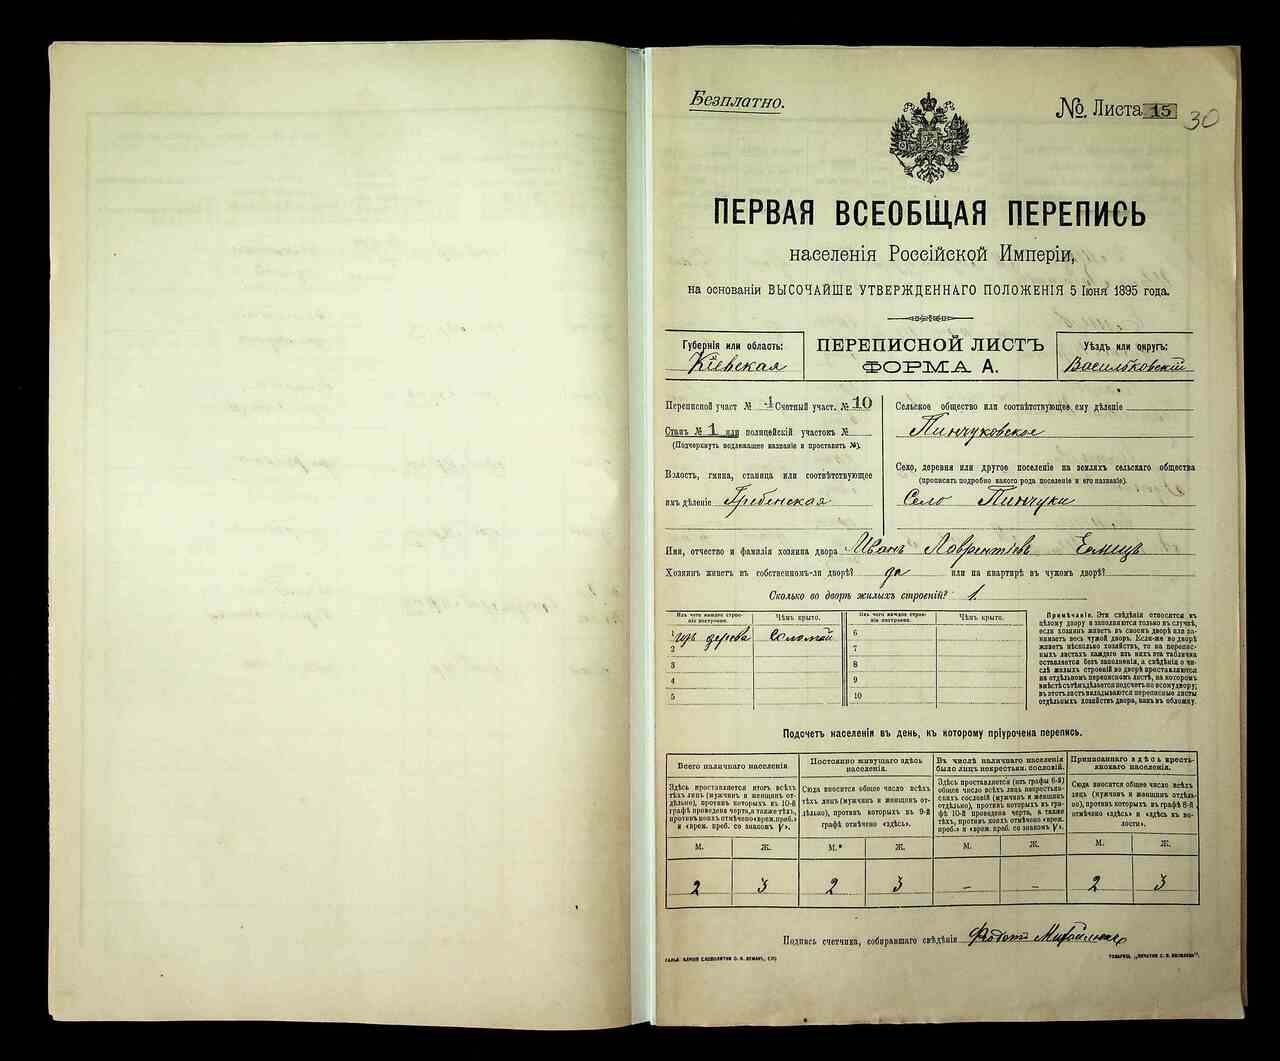 Безплатно.
№. Листа 15
30
ПЕРВАЯ ВСЕОБЩАЯ ПЕРЕПИСЬ
населенія Россійской Имперіи,
на основаніи ВЫСОЧАЙШЕ УТВЕРЖДЕННАГО ПОЛОЖЕНІЯ 5 Іюня 1895 года.
Губернія или область:
Кіевская
ПЕРЕПИСНОЙ ЛИСТЪ
ФОРМА А.
Уѣздъ или округъ:
Васильковскій
Переписной участ № 1 Счетный участ. № 10
Станъ № 1 или полицейскій участокъ №
(Подчеркнуть подлежащее названіе и проставить №).
Волость, гмина, станица или соотвѣтствующее
имъ дѣленіе Гребенская
Сельское общество или соотвѣтствующее ему дѣленіе
Пинчуковское
Село, деревня или другое поселеніе на земляхъ сельскаго общества
(прописать подробно какого рода поселеніе и его названіе).
Село Пинчуки
Имя, отчество и фамилія хозяина двора Иванъ Лаврентіевъ
Хозяинъ живетъ въ собственномъ-ли дворѣ? да или на квартирѣ въ чужомъ дворѣ?
Сколько во дворѣ жилыхъ строеній? 1.
Изъ чего каждое строеніе построено.
Чѣмъ крыто.
Изъ чего каждое строеніе построено.
Чѣмъ крыто.
1 изъ дерева Соломой 6
2 7
3 8
4 9
5 10
Примѣчаніе. Эти свѣдѣнія относятся къ
цѣлому двору и заполняются только въ случаѣ,
если хозяинъ живетъ въ своемъ дворѣ или занимаетъ весь чужой дворъ. Если-же во дворѣ
живетъ нѣсколько хозяйствъ, то на переписныхъ листахъ каждаго изъ нихъ эта табличка
оставляется безъ заполненія, а свѣдѣнія о числѣ жилыхъ строеній во дворѣ проставляются
на отдѣльномъ переписномъ листѣ, на которомъ
вмѣстѣ съ тѣмъ дѣлается подсчетъ по всему двору;
въ этотъ листъ вкладываются переписные листы
отдѣльныхъ хозяйствъ двора, какъ въ обложку.
Подсчетъ населенія въ день, къ которому пріурочена перепись.
Всего наличнаго населенія
Постоянно живущаго здѣсь населенія.
Въ числѣ наличнаго населенія было лицъ некрестьян. сословій.
Приписаннаго здѣсь крестьянскаго населенія.
Здѣсь проставляется итогъ всѣхъ
тѣхъ лицъ (мужчинъ и женщинъ отдѣльно), противъ которыхъ въ 10-й
графѣ проведена черта, а также тѣхъ,
противъ коихъ отмѣчено «врем. преб.»
и «врем. преб. со знакомъ V».
Сюда вносится общее число всѣхъ
тѣхъ лицъ (мужчинъ и женщинъ отдѣльно), противъ которыхъ въ 9-й
графѣ отмѣчено «здѣсь».
Здѣсь проставляется (изъ графы 6-й)
общее число всѣхъ лицъ некрестьянскихъ сословій (мужчинъ и женщинъ
отдѣльно), противъ которыхъ въ графѣ 10-й проведена черта, а также
тѣхъ, противъ коихъ отмѣчено «врем.
преб.» и «врем. преб. со знакомъ V».
Сюда вносится общее число всѣхъ
лицъ (мужчинъ и женщинъ отдѣльно), противъ которыхъ въ графѣ 8-й
отмѣчено «здѣсь» и «здѣсь въ волости».
М. Ж. М.* Ж. М. Ж. М. Ж.
2 3 2 3 - - 2 3
Подпись счетчика, собиравшаго свѣдѣнія